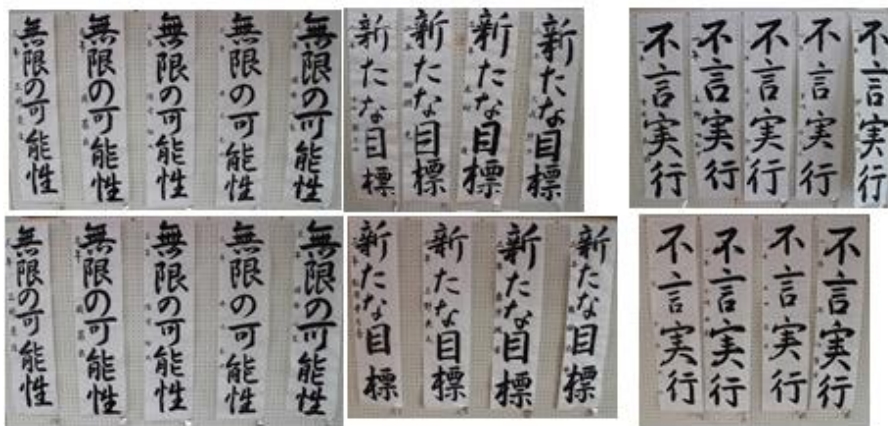 無限の可能性
無限の可能性
無限の可能性
無限の可能性
無限の可能性
新たな目標
新たな目標
新たな目標
新たな目標
不言実行
不言実行
不言実行
不言実行
不言実行
無限の可能性
無限の可能性
無限の可能性
無限の可能性
無限の可能性
新たな目標
新たな目標
新たな目標
新たな目標
不言実行
不言実行
不言実行
不言実行